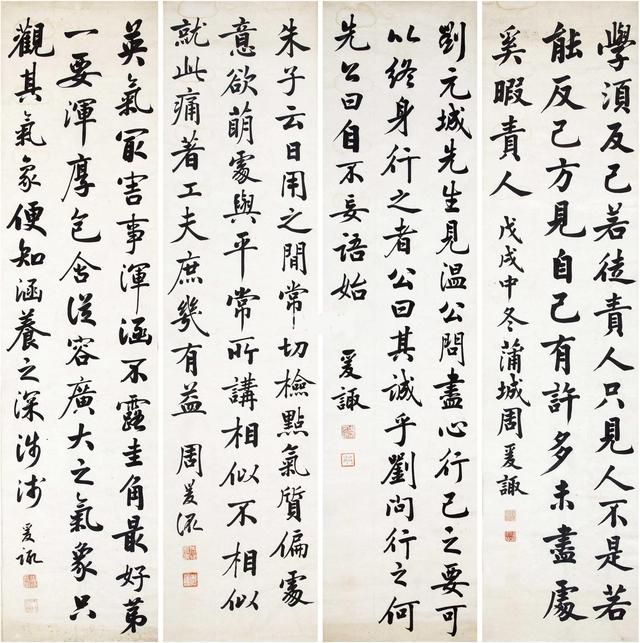 學須反己若徒責人只見人不是若
能反己方見自己有許多未盡處
奚暇責人
戊戌中冬蒲城周爰諏
劉元城先生見溫公問盡心行己之要可
以終身行之者公曰其誠乎劉問行之何
先公曰自不妄語始
爰諏
朱子云日用之閒常切檢點氣質偏處
意欲萌處與平常所講相似不相似
就此痛著工夫庶幾有益
周爰諏
英氣最害事渾涵不露圭角最好第
一要渾厚包含從容廣大之氣象只
觀其氣象便知涵養之深淺
爰諏